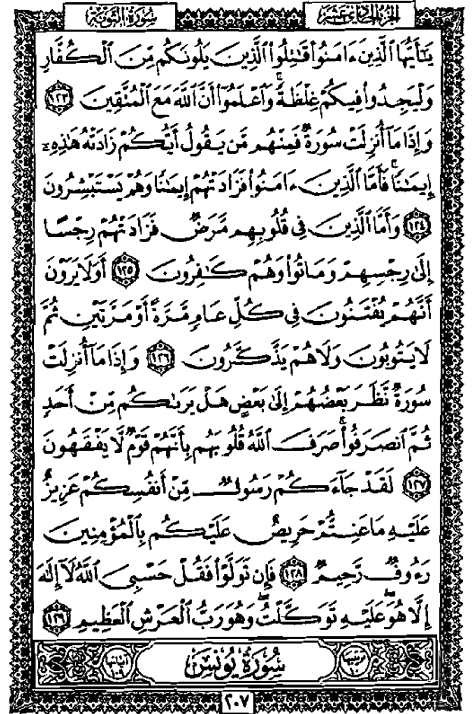 سُورَةُ التَّوْبَةِ
الجُزْءُ الحَادِي عَشَرَ
يَـٰٓأَيُّهَا ٱلَّذِينَ ءَامَنُوا۟ قَـٰتِلُوا۟ ٱلَّذِينَ يَلُونَكُم مِّنَ ٱلْكُفَّارِ
وَلْيَجِدُوا۟ فِيكُمْ غِلْظَةً ۚ وَٱعْلَمُوٓا۟ أَنَّ ٱللَّهَ مَعَ ٱلْمُتَّقِينَ ١٢٣
وَإِذَا مَآ أُنزِلَتْ سُورَةٌ فَمِنْهُم مَّن يَقُولُ أَيُّكُمْ زَادَتْهُ هَـٰذِهِۦٓ
إِيمَـٰنًا ۚ فَأَمَّا ٱلَّذِينَ ءَامَنُوا۟ فَزَادَتْهُمْ إِيمَـٰنًا وَهُمْ يَسْتَبْشِرُونَ
١٢٤ وَأَمَّا ٱلَّذِينَ فِى قُلُوبِهِم مَّرَضٌ فَزَادَتْهُمْ رِجْسًا
إِلَىٰ رِجْسِهِمْ وَمَاتُوا۟ وَهُمْ كَـٰفِرُونَ ١٢٥ أَوَلَا يَرَوْنَ
أَنَّهُمْ يُفْتَنُونَ فِى كُلِّ عَامٍ مَّرَّةً أَوْ مَرَّتَيْنِ ثُمَّ
لَا يَتُوبُونَ وَلَا هُمْ يَذَّكَّرُونَ ١٢٦ وَإِذَا مَآ أُنزِلَتْ
سُورَةٌ نَّظَرَ بَعْضُهُمْ إِلَىٰ بَعْضٍ هَلْ يَرَىٰكُم مِّنْ أَحَدٍ
ثُمَّ ٱنصَرَفُوا۟ ۚ صَرَفَ ٱللَّهُ قُلُوبَهُم بِأَنَّهُمْ قَوْمٌ لَّا يَفْقَهُونَ
١٢٧ لَقَدْ جَآءَكُمْ رَسُولٌ مِّنْ أَنفُسِكُمْ عَزِيزٌ
عَلَيْهِ مَا عَنِتُّمْ حَرِيصٌ عَلَيْكُم بِٱلْمُؤْمِنِينَ
رَءُوفٌ رَّحِيمٌ ١٢٨ فَإِن تَوَلَّوْا۟ فَقُلْ حَسْبِىَ ٱللَّهُ لَآ إِلَـٰهَ
إِلَّا هُوَ ۖ عَلَيْهِ تَوَكَّلْتُ ۖ وَهُوَ رَبُّ ٱلْعَرْشِ ٱلْعَظِيمِ ١٢٩
سُورَةُ يُونُسَ
٢٠٧